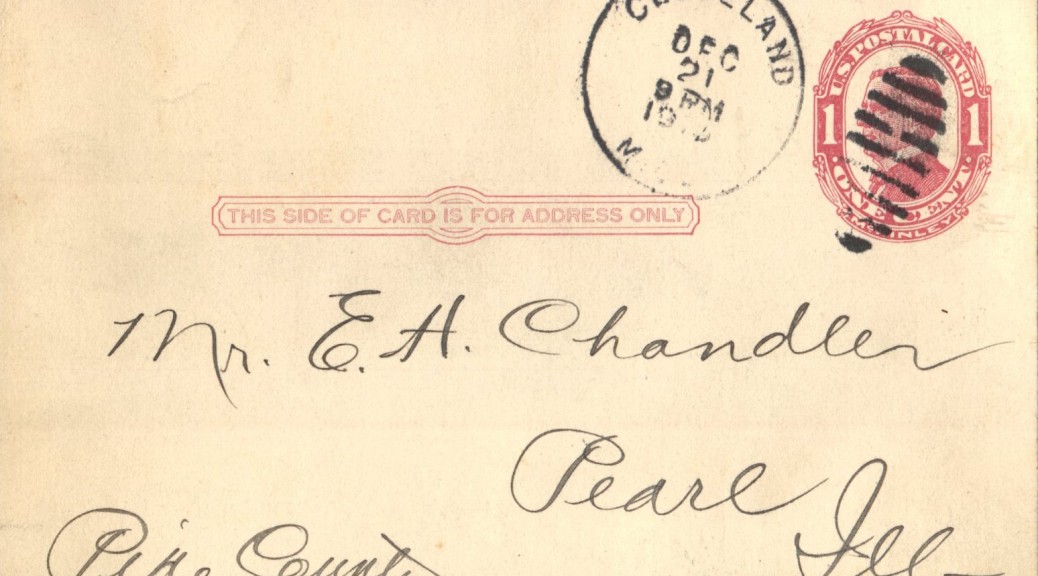 CLEVELAND
DEC
21
9 PM
M
U.S. POSTAL CARD
1 1
ONE CENT
McKINLEY
THIS SIDE OF CARD IS FOR ADDRESS ONLY
Mr. E. A. Chandler
Pearl
Ill-
Pike County